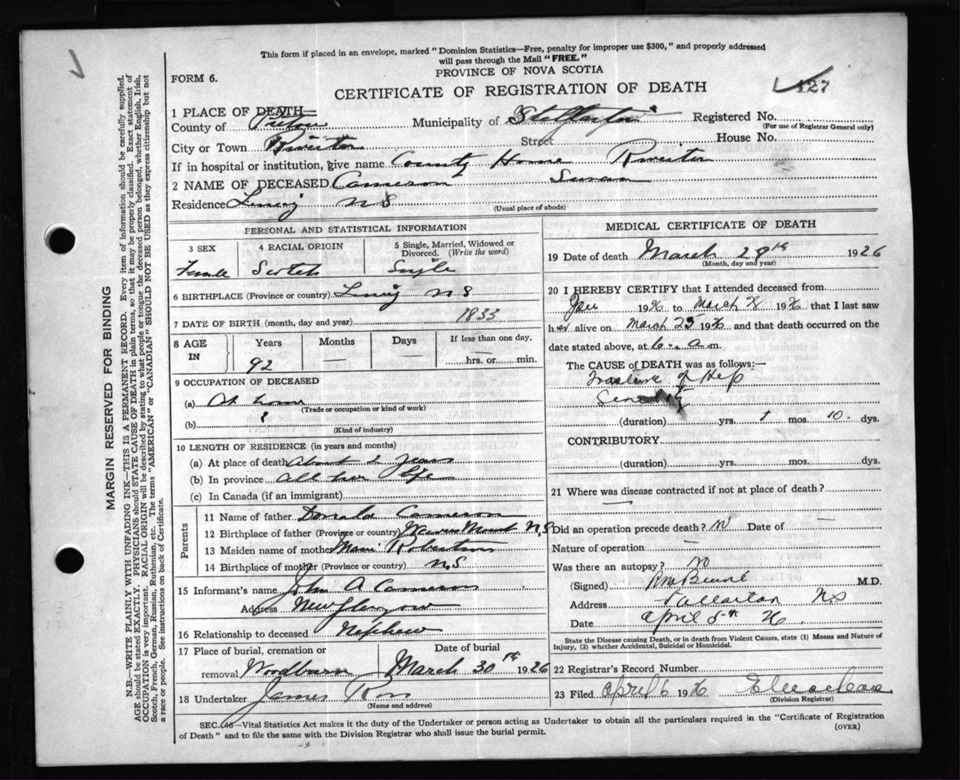 This form if placed in an envelope, marked "Dominion Statistics—Free, penalty for improper use $300," and properly addressed
will pass through the Mail "FREE."
PROVINCE OF NOVA SCOTIA
FORM 6.
CERTIFICATE OF REGISTRATION OF DEATH
127
MARGIN RESERVED FOR BINDING
N.B.—WRITE PLAINLY WITH UNFADING INK—THIS IS A PERMANENT RECORD. Every item of information should be carefully supplied.
AGE should be stated EXACTLY. PHYSICIANS should STATE CAUSE OF DEATH in plain terms, so that it may be properly classified. Exact statement of
OCCUPATION is very important. RACIAL ORIGIN will be described by stating to what people or tongue the deceased person belonged, whether English, Irish,
Scotch, French, German, Russian, Ruthenian, etc. The terms "AMERICAN" or "CANADIAN" SHOULD NOT BE USED as they express citizenship but not
a race or people. See instructions on back of Certificate.
1 PLACE OF DEATH—
County of Pictou Municipality of Stellarton Registered No.
(For use of Registrar General only)
City or Town Riverton Street House No.
If in hospital or institution, give name County Home Riverton
2 NAME OF DECEASED Cameron Susan
Residence N S
(Usual place of abode)
PERSONAL AND STATISTICAL INFORMATION
3 SEX
Female
4 RACIAL ORIGIN
Scotch
5 Single, Married, Widowed or
Divorced. (Write the word)
Single
6 BIRTHPLACE (Province or country) N S
7 DATE OF BIRTH (month, day and year) 1833
8 AGE IN
Years 92
Months —
Days —
If less than one day,
— hrs. or min.
9 OCCUPATION OF DECEASED
(a) At home
(Trade or occupation or kind of work)
(b)
(Kind of industry)
10 LENGTH OF RESIDENCE (in years and months)
(a) At place of death About 2 years
(b) In province All her Life
(c) In Canada (if an immigrant)
Parents
11 Name of father Donald Cameron
12 Birthplace of father (Province or country) Mount N S
13 Maiden name of mother Robertson
14 Birthplace of mother (Province or country) N S
15 Informant's name John A Cameron
Address New Glasgow
16 Relationship to deceased Nephew
17 Place of burial, cremation or
removal Woodburn
Date of burial
March 30th 1926
18 Undertaker James Ross
(Name and address)
MEDICAL CERTIFICATE OF DEATH
19 Date of death March 28th 1926
(Month, day and year)
20 I HEREBY CERTIFY that I attended deceased from
Jan 1926 to March 28 1926 that I last saw
her alive on March 25 1926 and that death occurred on the
date stated above, at 6 a.m.
The CAUSE OF DEATH was as follows:—
Fracture of Hip
Senility
(duration) yrs. 1 mos. 10 dys.
CONTRIBUTORY
(duration) yrs. mos. dys.
21 Where was disease contracted if not at place of death?
—
Did an operation precede death? No Date of —
Nature of operation —
Was there an autopsy? No
(Signed) M.D.
Address Stellarton N S
Date April 5th 26
State the Disease causing Death, or in death from Violent Causes, state (1) Means and Nature of
Injury, (2) whether Accidental, Suicidal or Homicidal.
22 Registrar's Record Number
23 Filed April 6 1926
(Division Registrar)
SEC. 46—Vital Statistics Act makes it the duty of the Undertaker or person acting as Undertaker to obtain all the particulars required in the "Certificate of Registration
of Death" and to file the same with the Division Registrar who shall issue the burial permit.
(OVER)